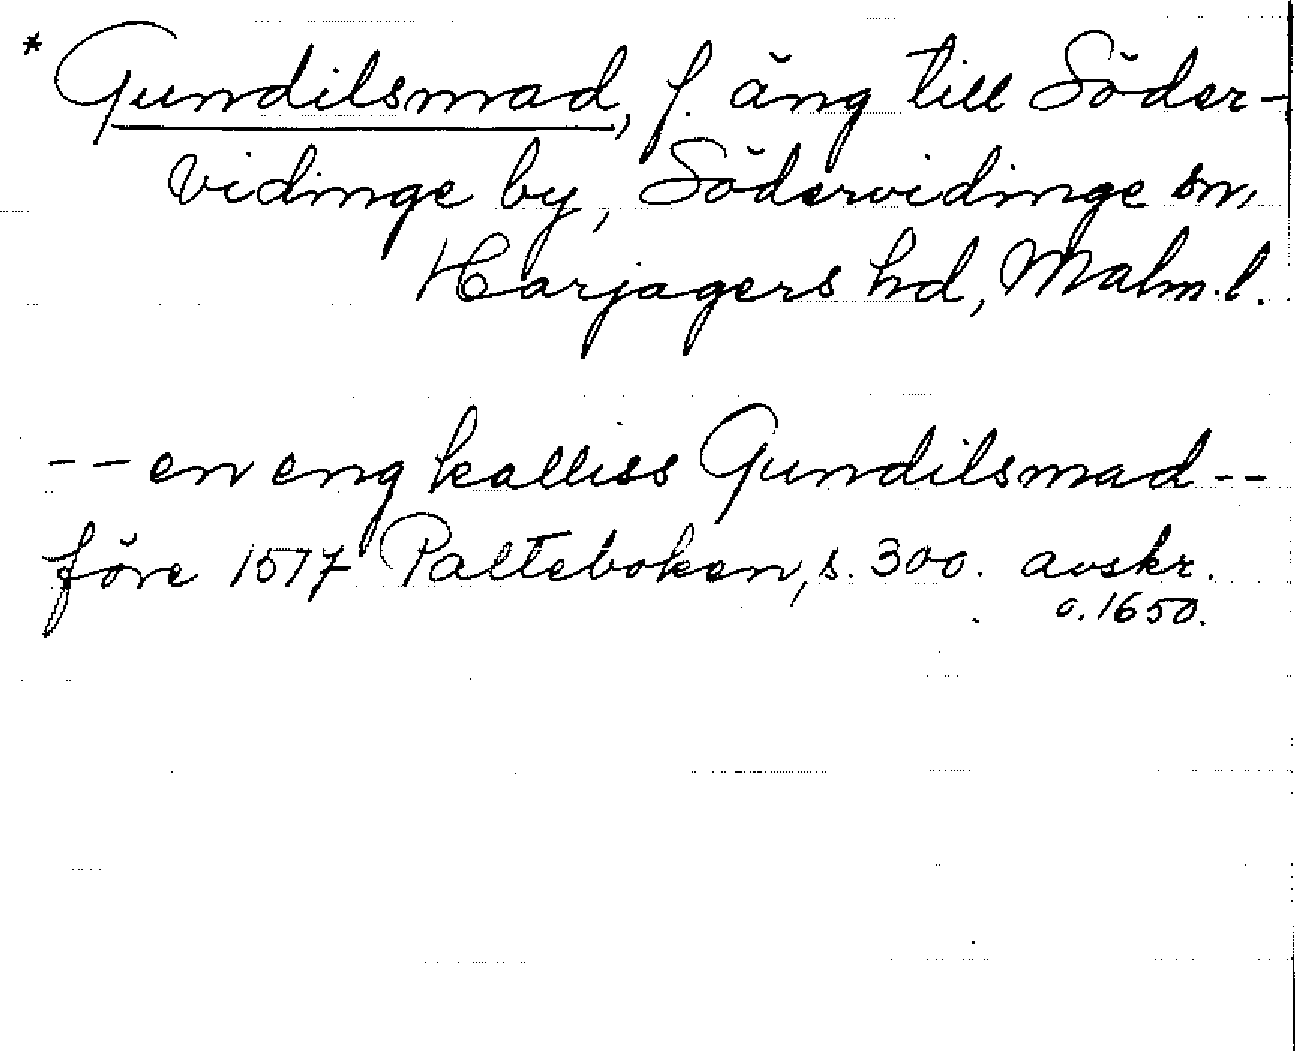 * Gundilsmad, f. äng till Söder-
vidinge by, Södervidinge sn,
Harjagers hd, Malm. l.
-- en eng kalliss Gundilsmad --
före 1577 Palteboken, s. 300. avskr.
o. 1650.